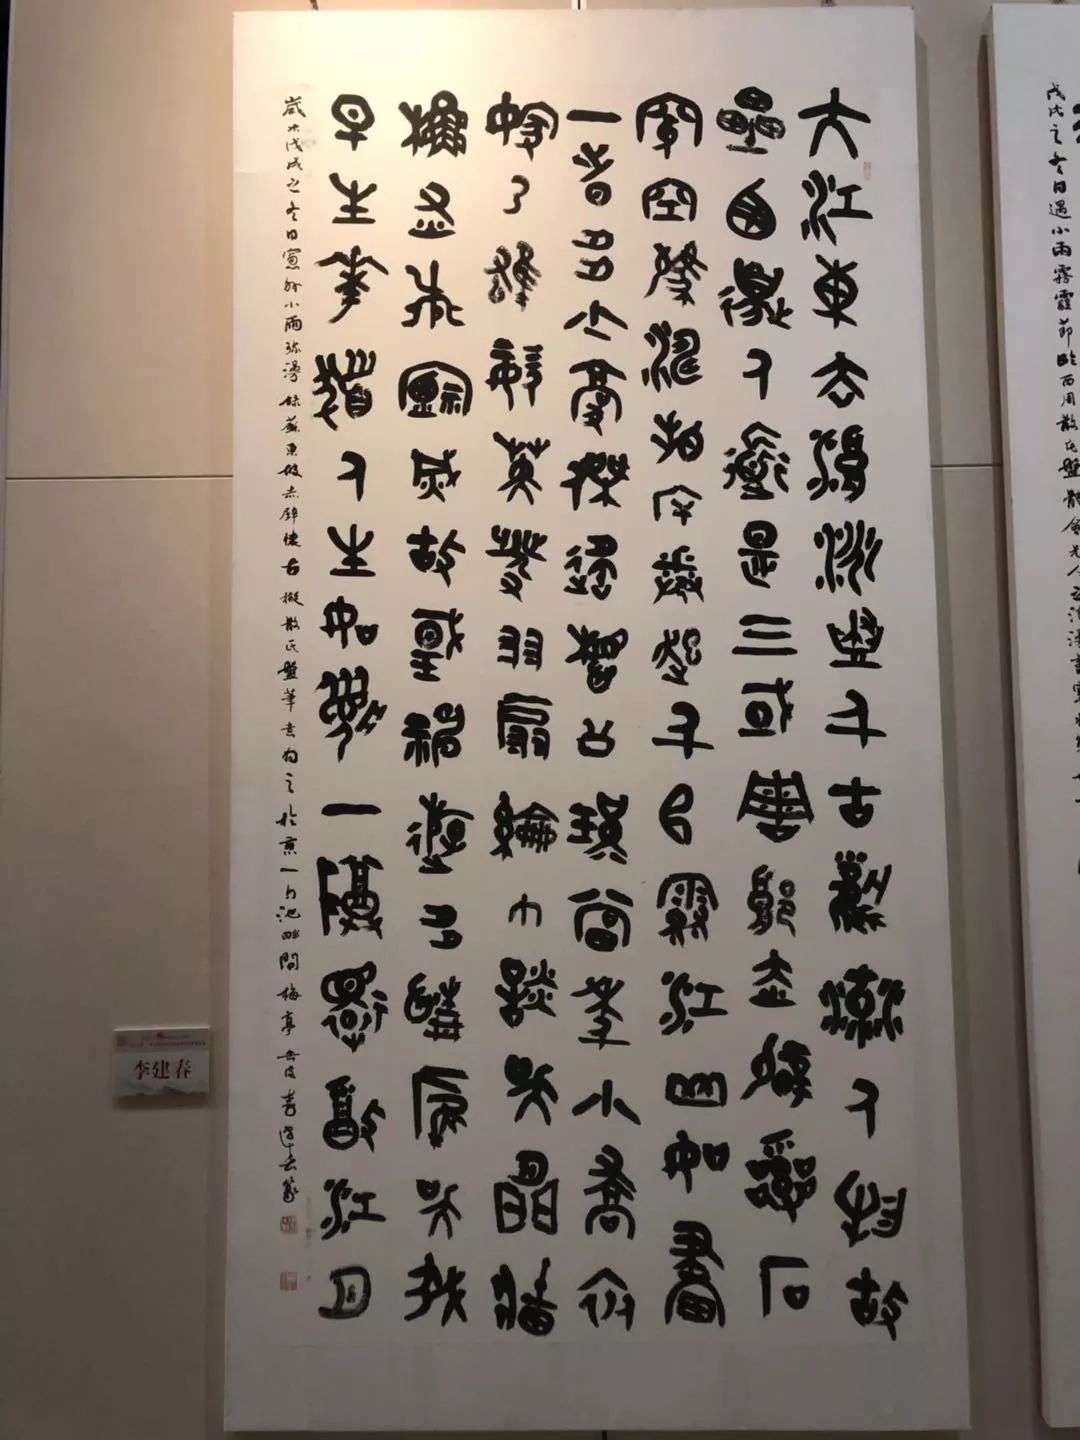 大江東去浪淘盡千古風流人物故
壘西邊人道是三國周郎赤壁亂石
穿空驚濤拍岸捲起千堆雪江山如畫
一時多少豪傑遙想公瑾當年小喬初
嫁了雄姿英發羽扇綸巾談笑間檣
櫓灰飛煙滅故國神遊多情應笑我
早生華髮人生如夢一尊還酹江月
歲次戊戌之冬日窗外小雨弥漫錄蘇東坡赤壁懷古擬散氏盤筆意為之於京一勺池畔問梅亭
戊戌之冬日遇小雨霧霾節臨西周散氏盤
李建春